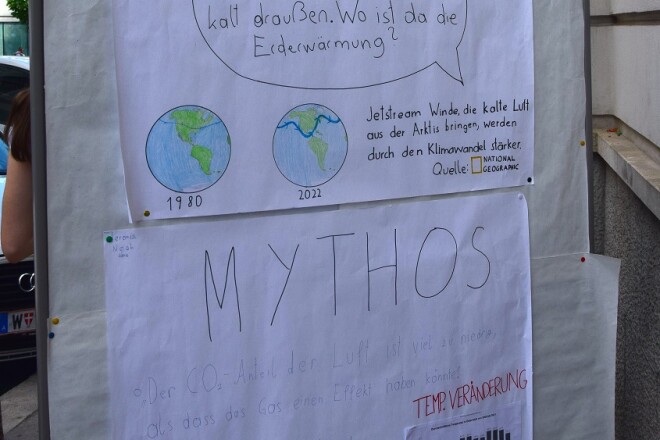 kalt draußen. Wo ist da die
Erderwärmung?
Jetstream Winde, die kalte Luft
aus der Arktis bringen, werden
durch den Klimawandel stärker.
Quelle: NATIONAL
GEOGRAPHIC
1980
2022
MYTHOS
„Der CO₂-Anteil der Luft ist viel zu niedrig,
als dass das Gas einen Effekt haben könnte!
TEMP. VERÄNDERUNG
W